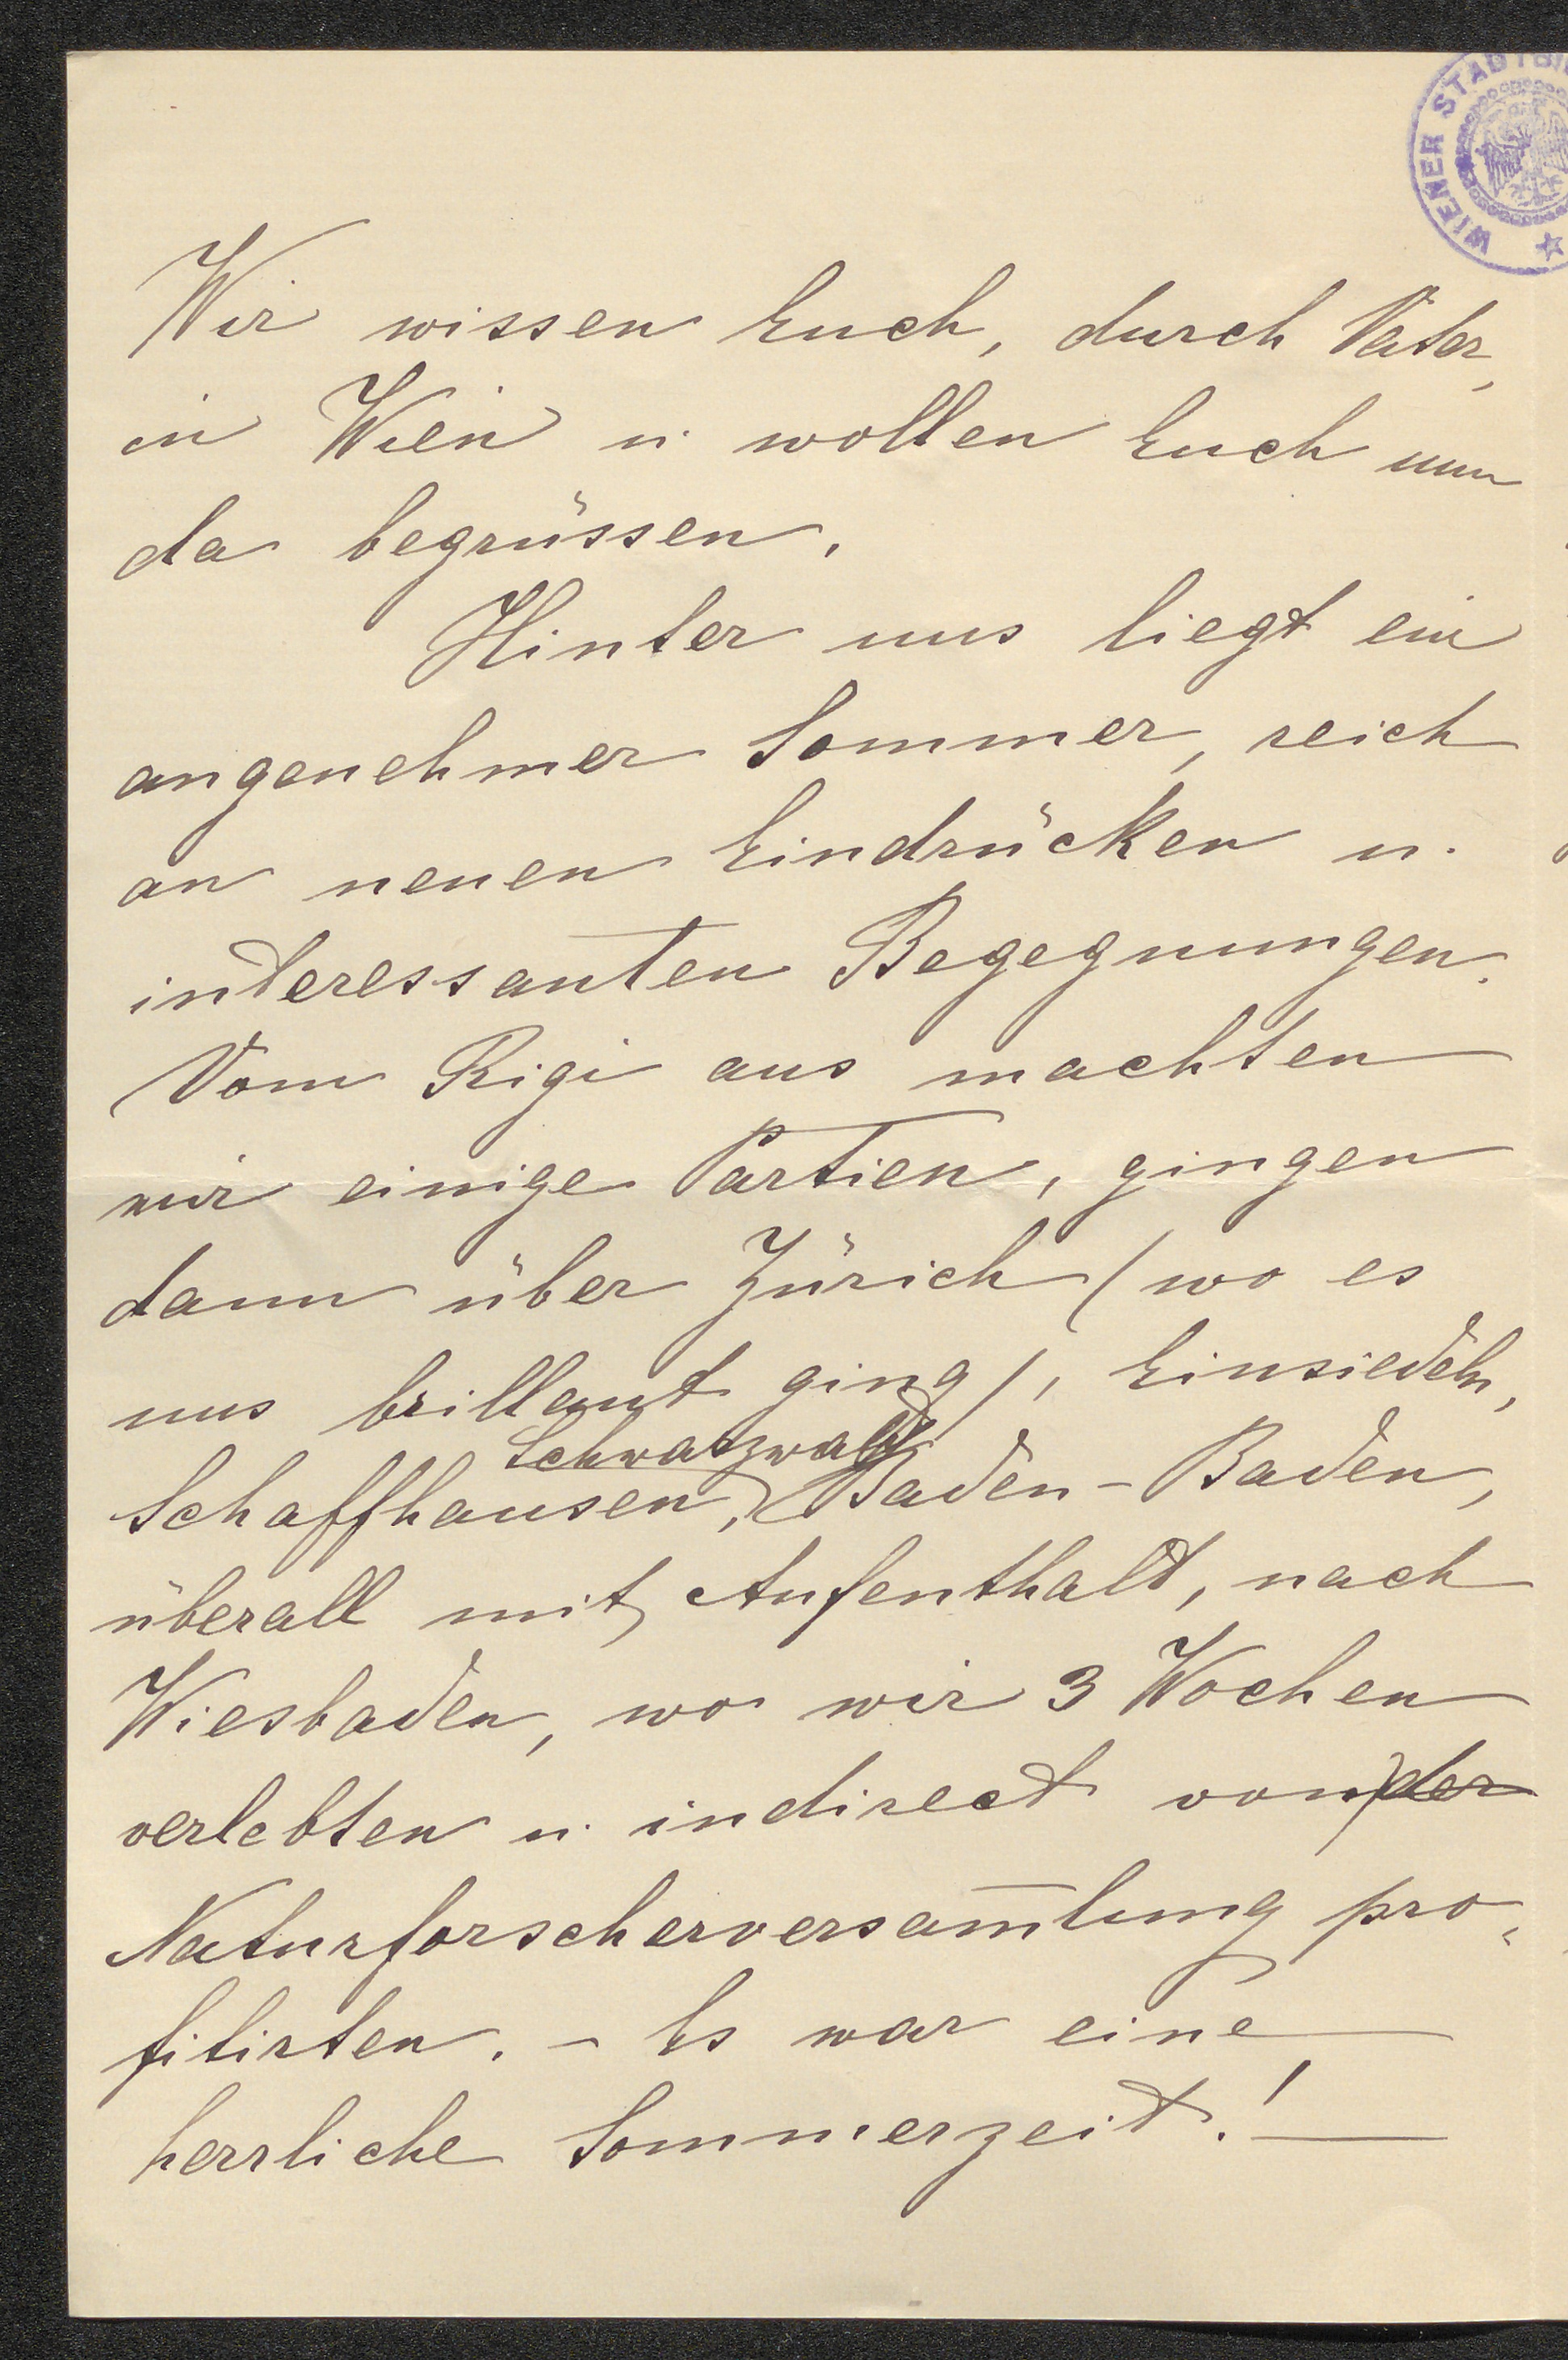 WIENER STADTBI
Wir wissen Euch, durch Vater,
in Wien u. wollen Euch nun
da begrüssen.
Hinter uns liegt ein
angenehmer Sommer, reich
an neuen Eindrücken u.
interessanten Begegnungen.
Vom Rigi aus machten
wir einige Partien, gingen
dann über Zürich (wo es
uns brillant ging), Einsiedeln,
Schwarzwald
Schaffhausen, Baden-Baden,
überall mit Aufenthalt, nach
Wiesbaden, wo wir 3 Wochen
verlebten u. indirect von der
Naturforscherversam̅lung pro-
fitirten. - Es war eine
herrliche Sommerzeit.! —